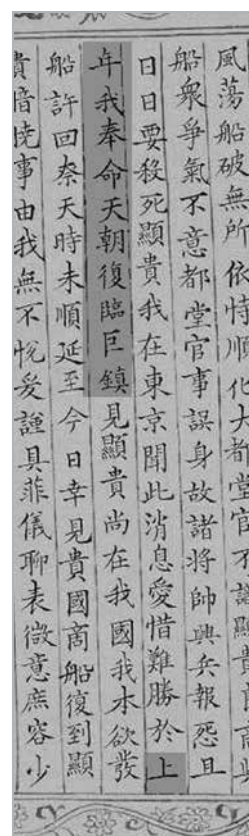 風荡船破無所依恃順化大都堂官不識顯貴
船衆爭氣不意都堂官事誤身故諸將帥興兵報怨且
日日要殺死顯貴我在東京聞此消息愛惜難勝於上
年我奉命天朝復臨巨鎮見顯貴尚在我國我本欲發
船許回柰天時未順延至今日幸見貴國商船復到顯
貴愔曉事由我無不悅爰謹具菲儀聊表微意庶容少